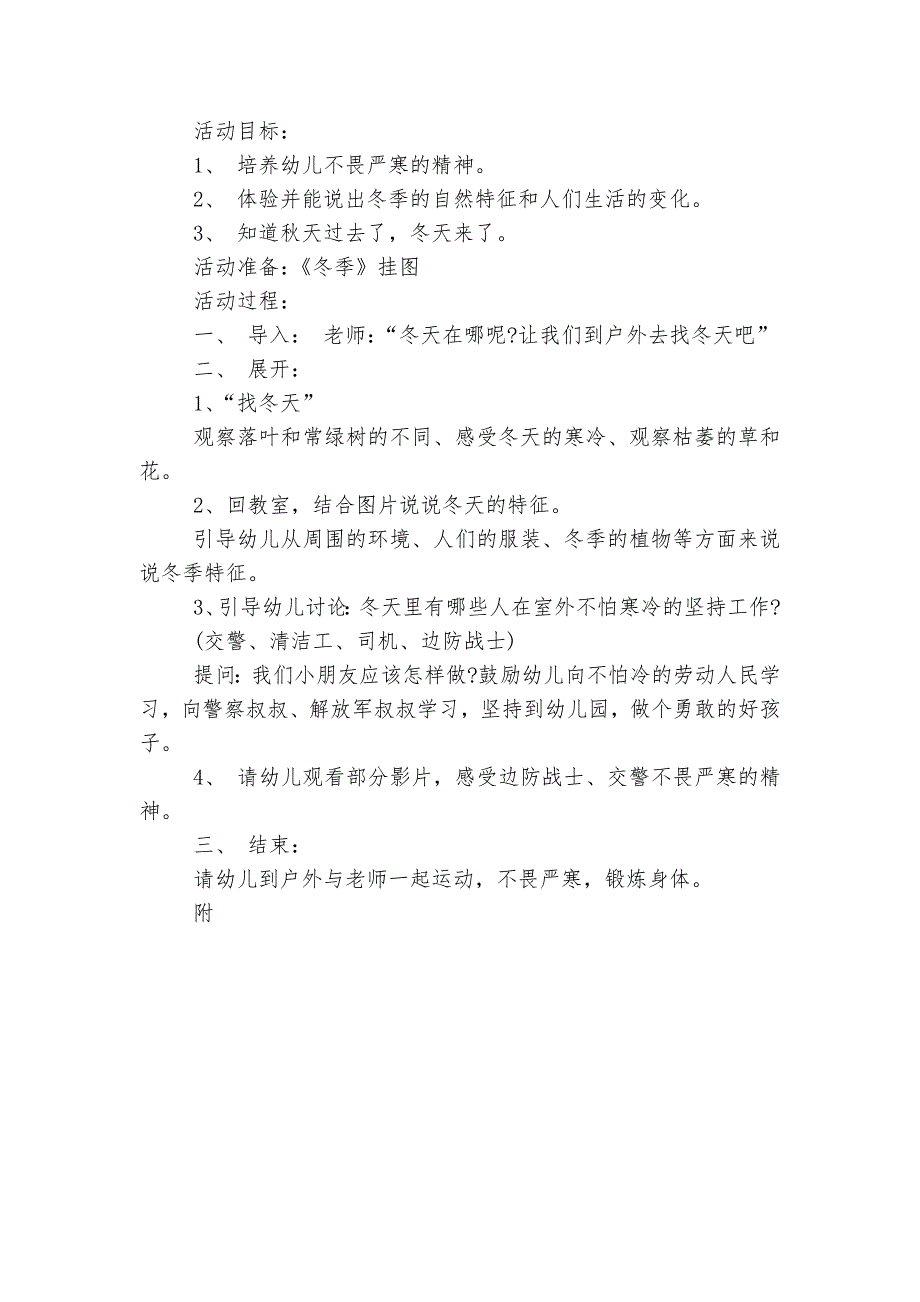 活动目标：
1、 培养幼儿不畏严寒的精神。
2、 体验并能说出冬季的自然特征和人们生活的变化。
3、 知道秋天过去了，冬天来了。
活动准备：《冬季》挂图
活动过程：
一、 导入： 老师：“冬天在哪呢?让我们到户外去找冬天吧”
二、 展开：
1、“找冬天”
观察落叶和常绿树的不同、感受冬天的寒冷、观察枯萎的草和
花。
2、回教室，结合图片说说冬天的特征。
引导幼儿从周围的环境、人们的服装、冬季的植物等方面来说
说冬季特征。
3、引导幼儿讨论：冬天里有哪些人在室外不怕寒冷的坚持工作?
(交警、清洁工、司机、边防战士)
提问：我们小朋友应该怎样做?鼓励幼儿向不怕冷的劳动人民学
习，向警察叔叔、解放军叔叔学习，坚持到幼儿园，做个勇敢的好孩
子。
4、 请幼儿观看部分影片，感受边防战士、交警不畏严寒的精
神。
三、 结束：
请幼儿到户外与老师一起运动，不畏严寒，锻炼身体。
附